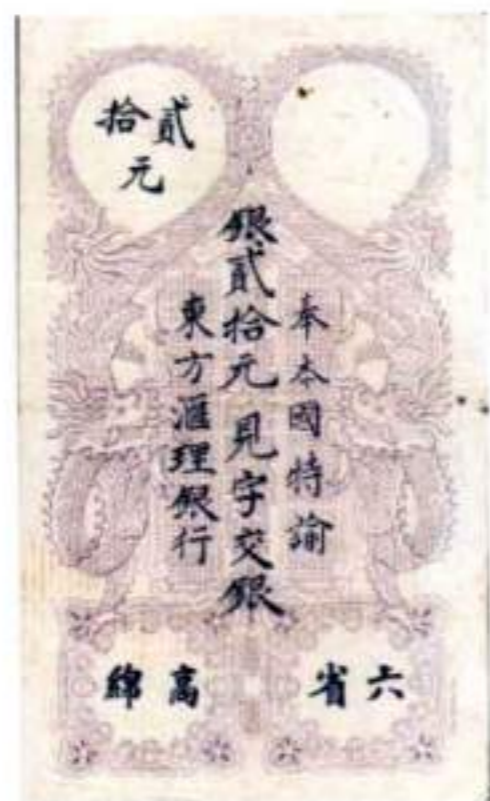 貳拾元
奉本國特諭
銀貳拾元見字交銀
東方滙理銀行
六省
高綿